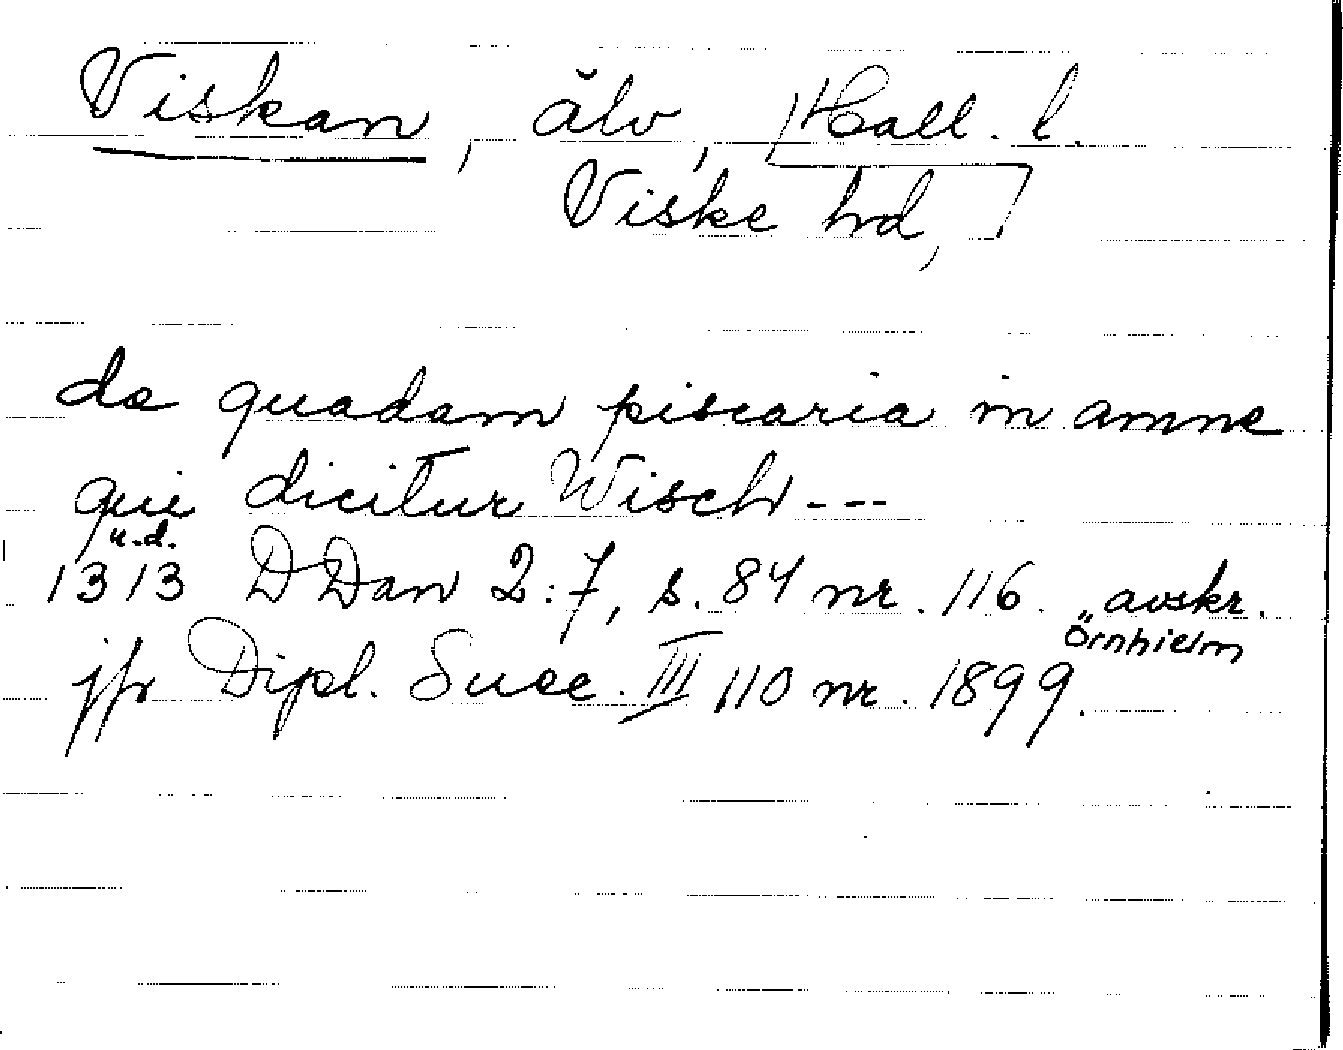 Viskan, älv, [Hall. l.
Viske hd,]
de quadam piscaria in amne
qui dicitur Wisch ---
u.d.
1313 DDan 2:7, s. 84 nr. 116. avskr.
Örnhielm
jfr Dipl. Suec. III 110 nr. 1899.